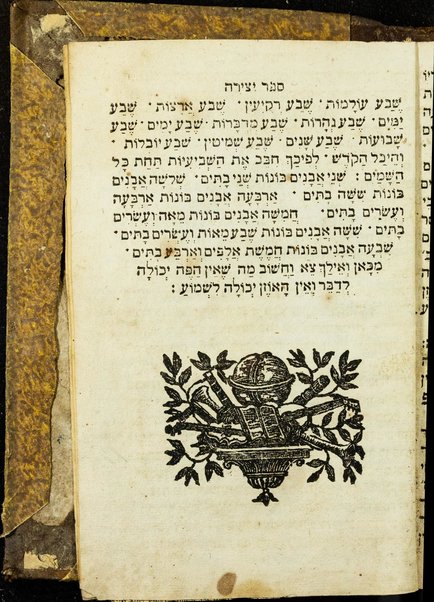 ספר יצירה
שֶׁבַע עוֹלָמוֹת · שֶׁבַע רְקִיעִין · שֶׁבַע אֲרָצוֹת · שֶׁבַע
יַמִּים · שֶׁבַע נְהָרוֹת · שֶׁבַע מִדְבָּרוֹת · שֶׁבַע יָמִים · שֶׁבַע
שָׁבוּעוֹת · שֶׁבַע שָׁנִים · שֶׁבַע שְׁמִיטִין · שֶׁבַע יוֹבְלוֹת ·
וְהֵיכַל הַקֹּדֶשׁ · לְפִיכָךְ חִבֵּב אֶת הַשְּׁבִיעִיּוֹת תַּחַת כָּל
הַשָּׁמַיִם : שְׁנֵי אֲבָנִים בּוֹנוֹת שְׁנֵי בָתִּים · שְׁלֹשָׁה אֲבָנִים
בּוֹנוֹת שִׁשָּׁה בָתִּים · אַרְבָּעָה אֲבָנִים בּוֹנוֹת אַרְבָּעָה
וְעֶשְׂרִים בָּתִּים · חֲמִשָּׁה אֲבָנִים בּוֹנוֹת מֵאָה וְעֶשְׂרִים
בָּתִּים · שִׁשָּׁה אֲבָנִים בּוֹנוֹת שְׁבַע מֵאוֹת וְעֶשְׂרִים בָּתִּים ·
שִׁבְעָה אֲבָנִים בּוֹנוֹת חֲמֵשֶׁת אֲלָפִים וְאַרְבַּע בָּתִּים ·
מִכָּאן וְאֵילָךְ צֵא וַחֲשׁוֹב מַה שֶּׁאֵין הַפֶּה יְכוֹלָה
לְדַבֵּר וְאֵין הָאוֹזֶן יְכוֹלָה לִשְׁמוֹעַ :